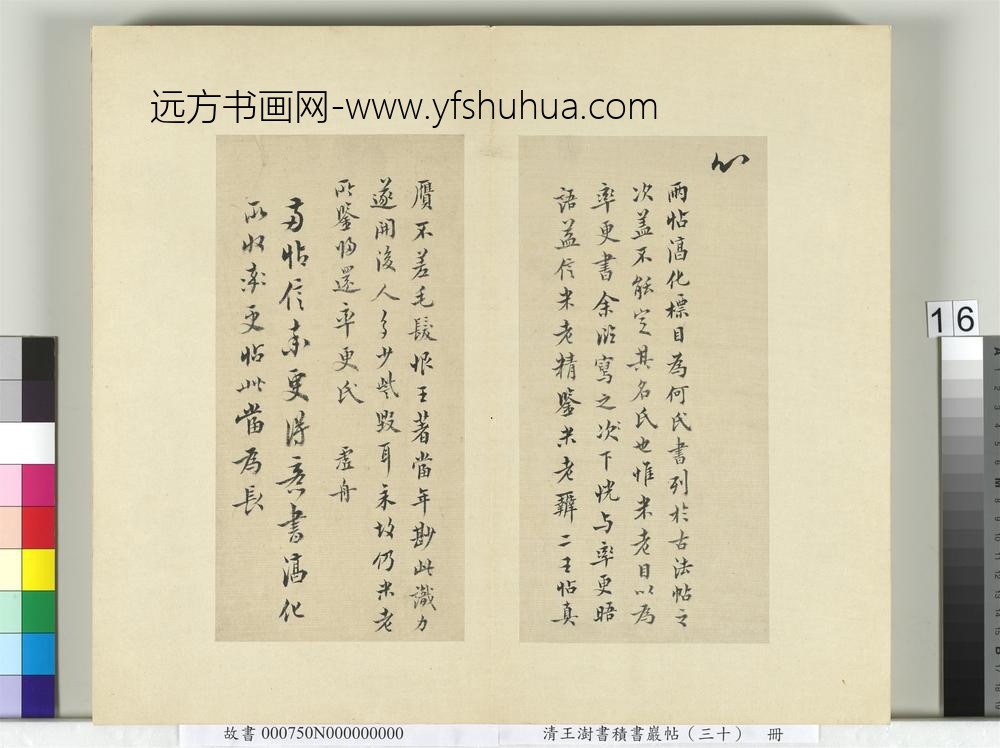 远方书画网-www.yfshuhua.com
心
兩帖淳化標目為何氏書列於古法帖之
次蓋不能定其名氏也惟米老目以為
率更書余臨寫之次下恍与率更晤
語益信米老精鑒米老辨二王帖真
贗不差毛髮恨王著當年尠此識力
遂開後人多少訾毀耳余故仍米老
所鑒歸還率更氏 虛舟
兩帖信率更得意書淳化
所收率更帖此當為長
16
故書 000750N000000000
清王澍書積書巖帖（三十） 冊